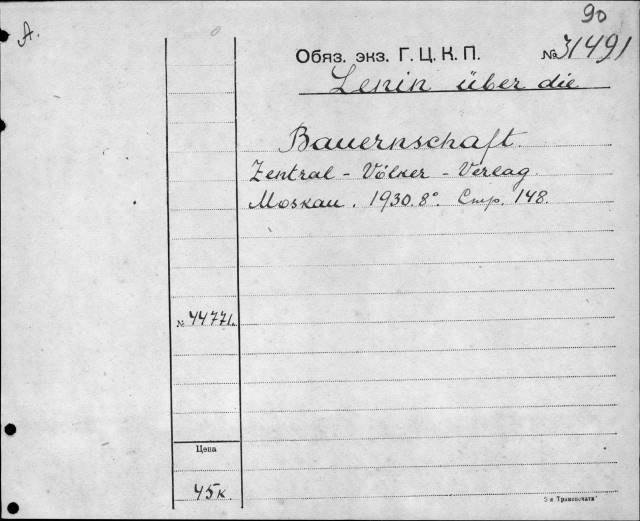 90
A.
Обяз. экз. Г. Ц. К. П. № 31491
Lenin über die
Bauernschaft.
Zentral - Völker - Verlag.
Moskau. 1930. 8°. Стр. 148.
№ 44771.
Цена
45 к.